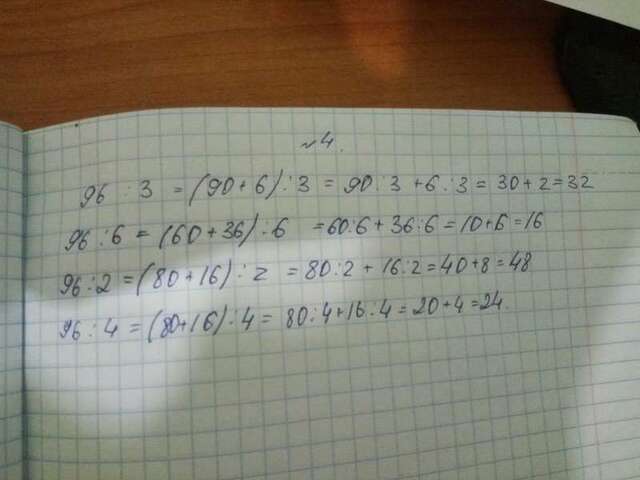 №4.
96 : 3 = (90+6) : 3 = 90 : 3 + 6 : 3 = 30 + 2 = 32
96 : 6 = (60+36) : 6 = 60:6 + 36:6 = 10+6 = 16
96 : 2 = (80+16) : 2 = 80:2 + 16:2 = 40+8 = 48
96 : 4 = (80+16) : 4 = 80:4+16:4 = 20+4 = 24.